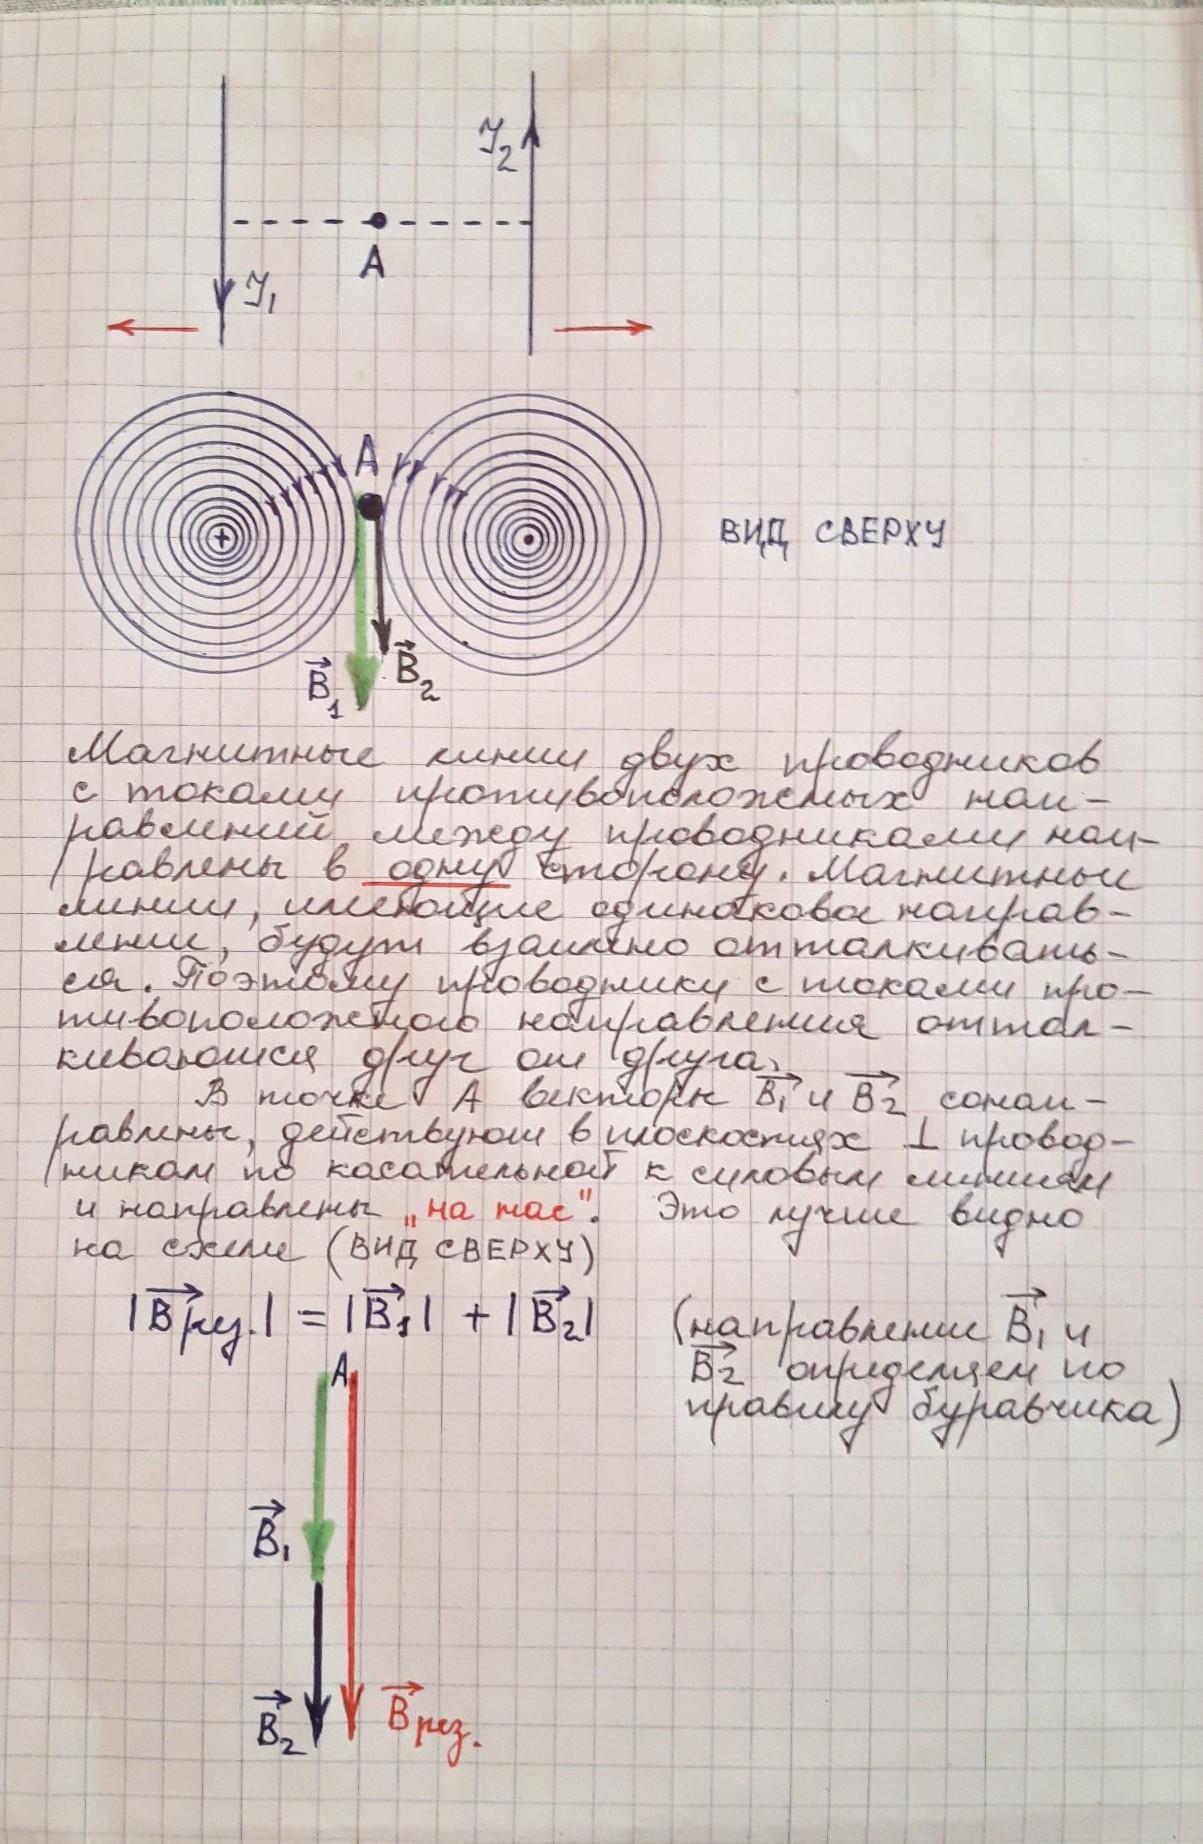 I₂
A
I₁
A
ВИД СВЕРХУ
B⃗₁
B⃗₂
Магнитные линии двух проводников
с токами противоположных нап-
равлений между проводниками нап-
равлены в одну сторону. Магнитные
линии, имеющие одинаковое направ-
ление, будут взаимно отталкивать-
ся. Поэтому проводники с токами про-
тивоположного направления оттал-
киваются друг от друга.
В точке А векторы B⃗₁ и B⃗₂ сонап-
равлены, действуют в плоскостях ⊥ провод-
никам по касательной к силовым линиям
и направлены „на нас". Это лучше видно
на схеме (ВИД СВЕРХУ)
|B⃗рез.| = |B⃗₁| + |B⃗₂|
(направление B⃗₁ и
B⃗₂ определяем по
правилу буравчика)
A
B⃗₁
B⃗₂
B⃗рез.